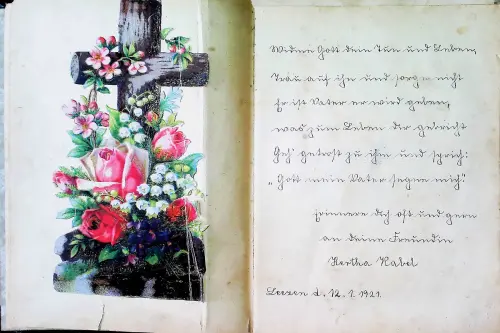 Widme Gott dein Tun und Leben,
Trau auf ihn und sorge nicht
Er ist Vater er wird geben,
was zum Leben dir gebricht
Geh' getrost zu ihm und sprich:
„Gott mein Vater segne mich".
Erinnere dich oft und gern
an deine Freundin
Hertha Nabel
Leezen d. 12. 1. 1921.